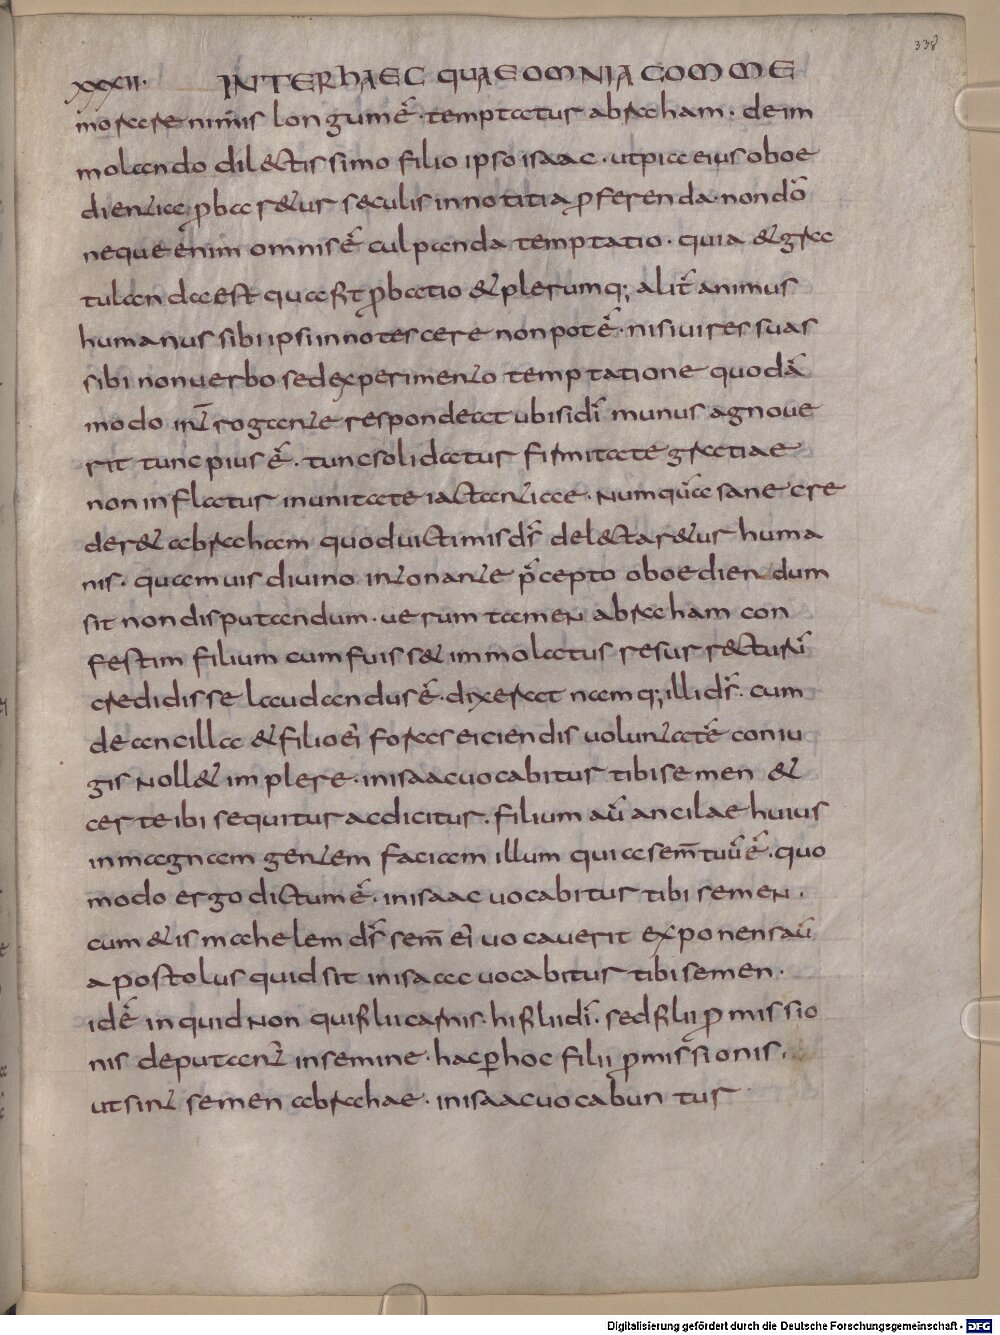 338
XXXII. INTERHAEC QUAE OMNIA COMME
morare nimis longum ē̃. temptatur abraham. de im
molando dilectissimo filio ipso isaac. ut pia eius oboe
dientia ꝓbaretur seculis in notitia ꝓferenda. non dō
neque enim omnis ē̃ culpanda temptatio. quia & gra
tulanda est qua fit ꝓbatio & plerumq; alit̃ animus
humanus sibi ipsi innotescere non pot ē̃. nisi uires suas
sibi non uerbo sed experimento temptatione quodã
modo int̃rogante respondeat ubi si dĩ munus agnoue
rit tunc pius ē̃. tunc solidatur firmitate gratiae
non inflatur inunitate iactantiae. Numquã sane cre
der& abraham quod uictimis ds̃ delectar&ur huma
nis. quamuis diuino intonante p̃cepto oboediendum
sit non disputandum. uerum tamen abraham con
festim filium cum fuiss& immolatus resurrecturũ
credidisse laudandus ē̃. dixerat namq; illi ds̃. cum
de ancilla & filio eĩ foras eiciendis uoluntatẽ coniu
gis noll& implere. in isaac uocabitur tibi semen &
certe ibi sequitur ac dicitur. filium aũ ancilae huius
in magnam gentem faciam illum quia sem̃ tuũ ẽ. quo
modo ergo dictum ẽ. in isaac uocabitur tibi semen.
cum & ismahelem ds̃ sem̃ eĩ uocauerit exponens aũ
apostolus quid sit in isaac uocabitur tibi semen.
id ẽ inquid Non qui filii carnis. hi filii dĩ. sed filii ꝓmissio
nis deputant̃ in semine. hac ꝑ hoc filii ꝓmissionis.
ut sint semen abrahae. in isaac uocabuntur
Digitalisierung gefördert durch die Deutsche Forschungsgemeinschaft - DFG